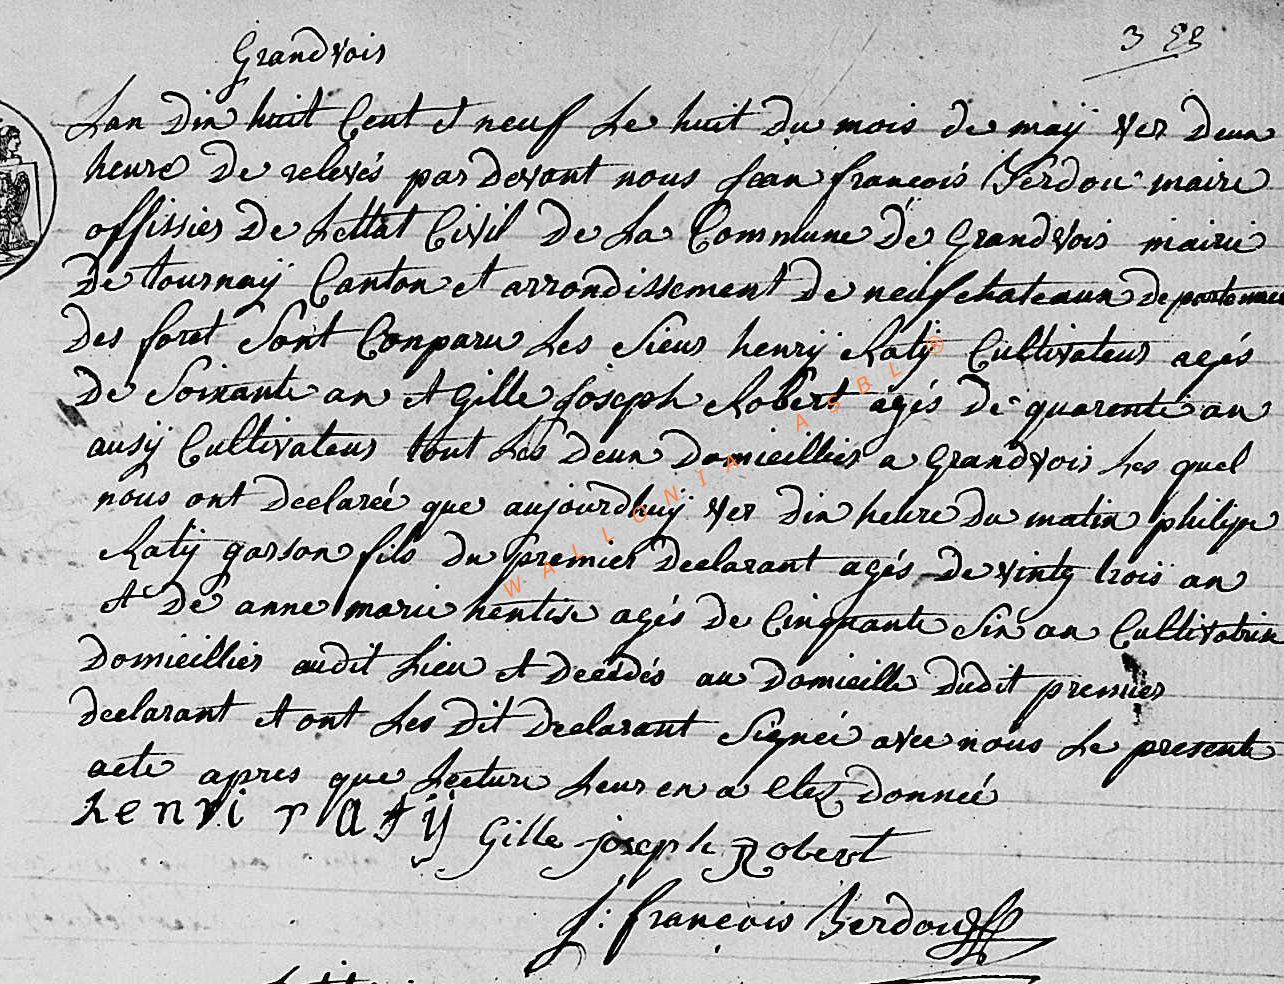 Grandvois
Lan dix huit Cent et neuf Le huit du mois de maÿ ver deux
heure de relevés par devant nous Jean françois Verdou maire
offissier de Lettat Civil de La Commune de Grandvois mairie
de tournaÿ Canton et arrondissement de neufchateaux departement
des foret Sont Comparu Les Sieur henrÿ Ratÿ Cultivateur agés
de Soixante an et Gille Joseph Robert agés de quarente an
ausÿ Cultivateur tout Les deux domicillier a Grandvois Les quel
nous ont declareé que aujourdhuÿ ver dix heure du matin philipe
Ratÿ garson fils du premier declarant agés de vintg trois an
et de anne marie hentise agés de Cinquante Six an Cultivatrix
domicillier audit Lieu et decédés au domicille dudit premier
declarant et ont Les dit declarant Signeé avec nous Le presente
acte apres que Lecture Leur en a etez donneé
henri ratÿ Gille joseph Robert
J: françois Verdou
WALLONIA ASBL ®